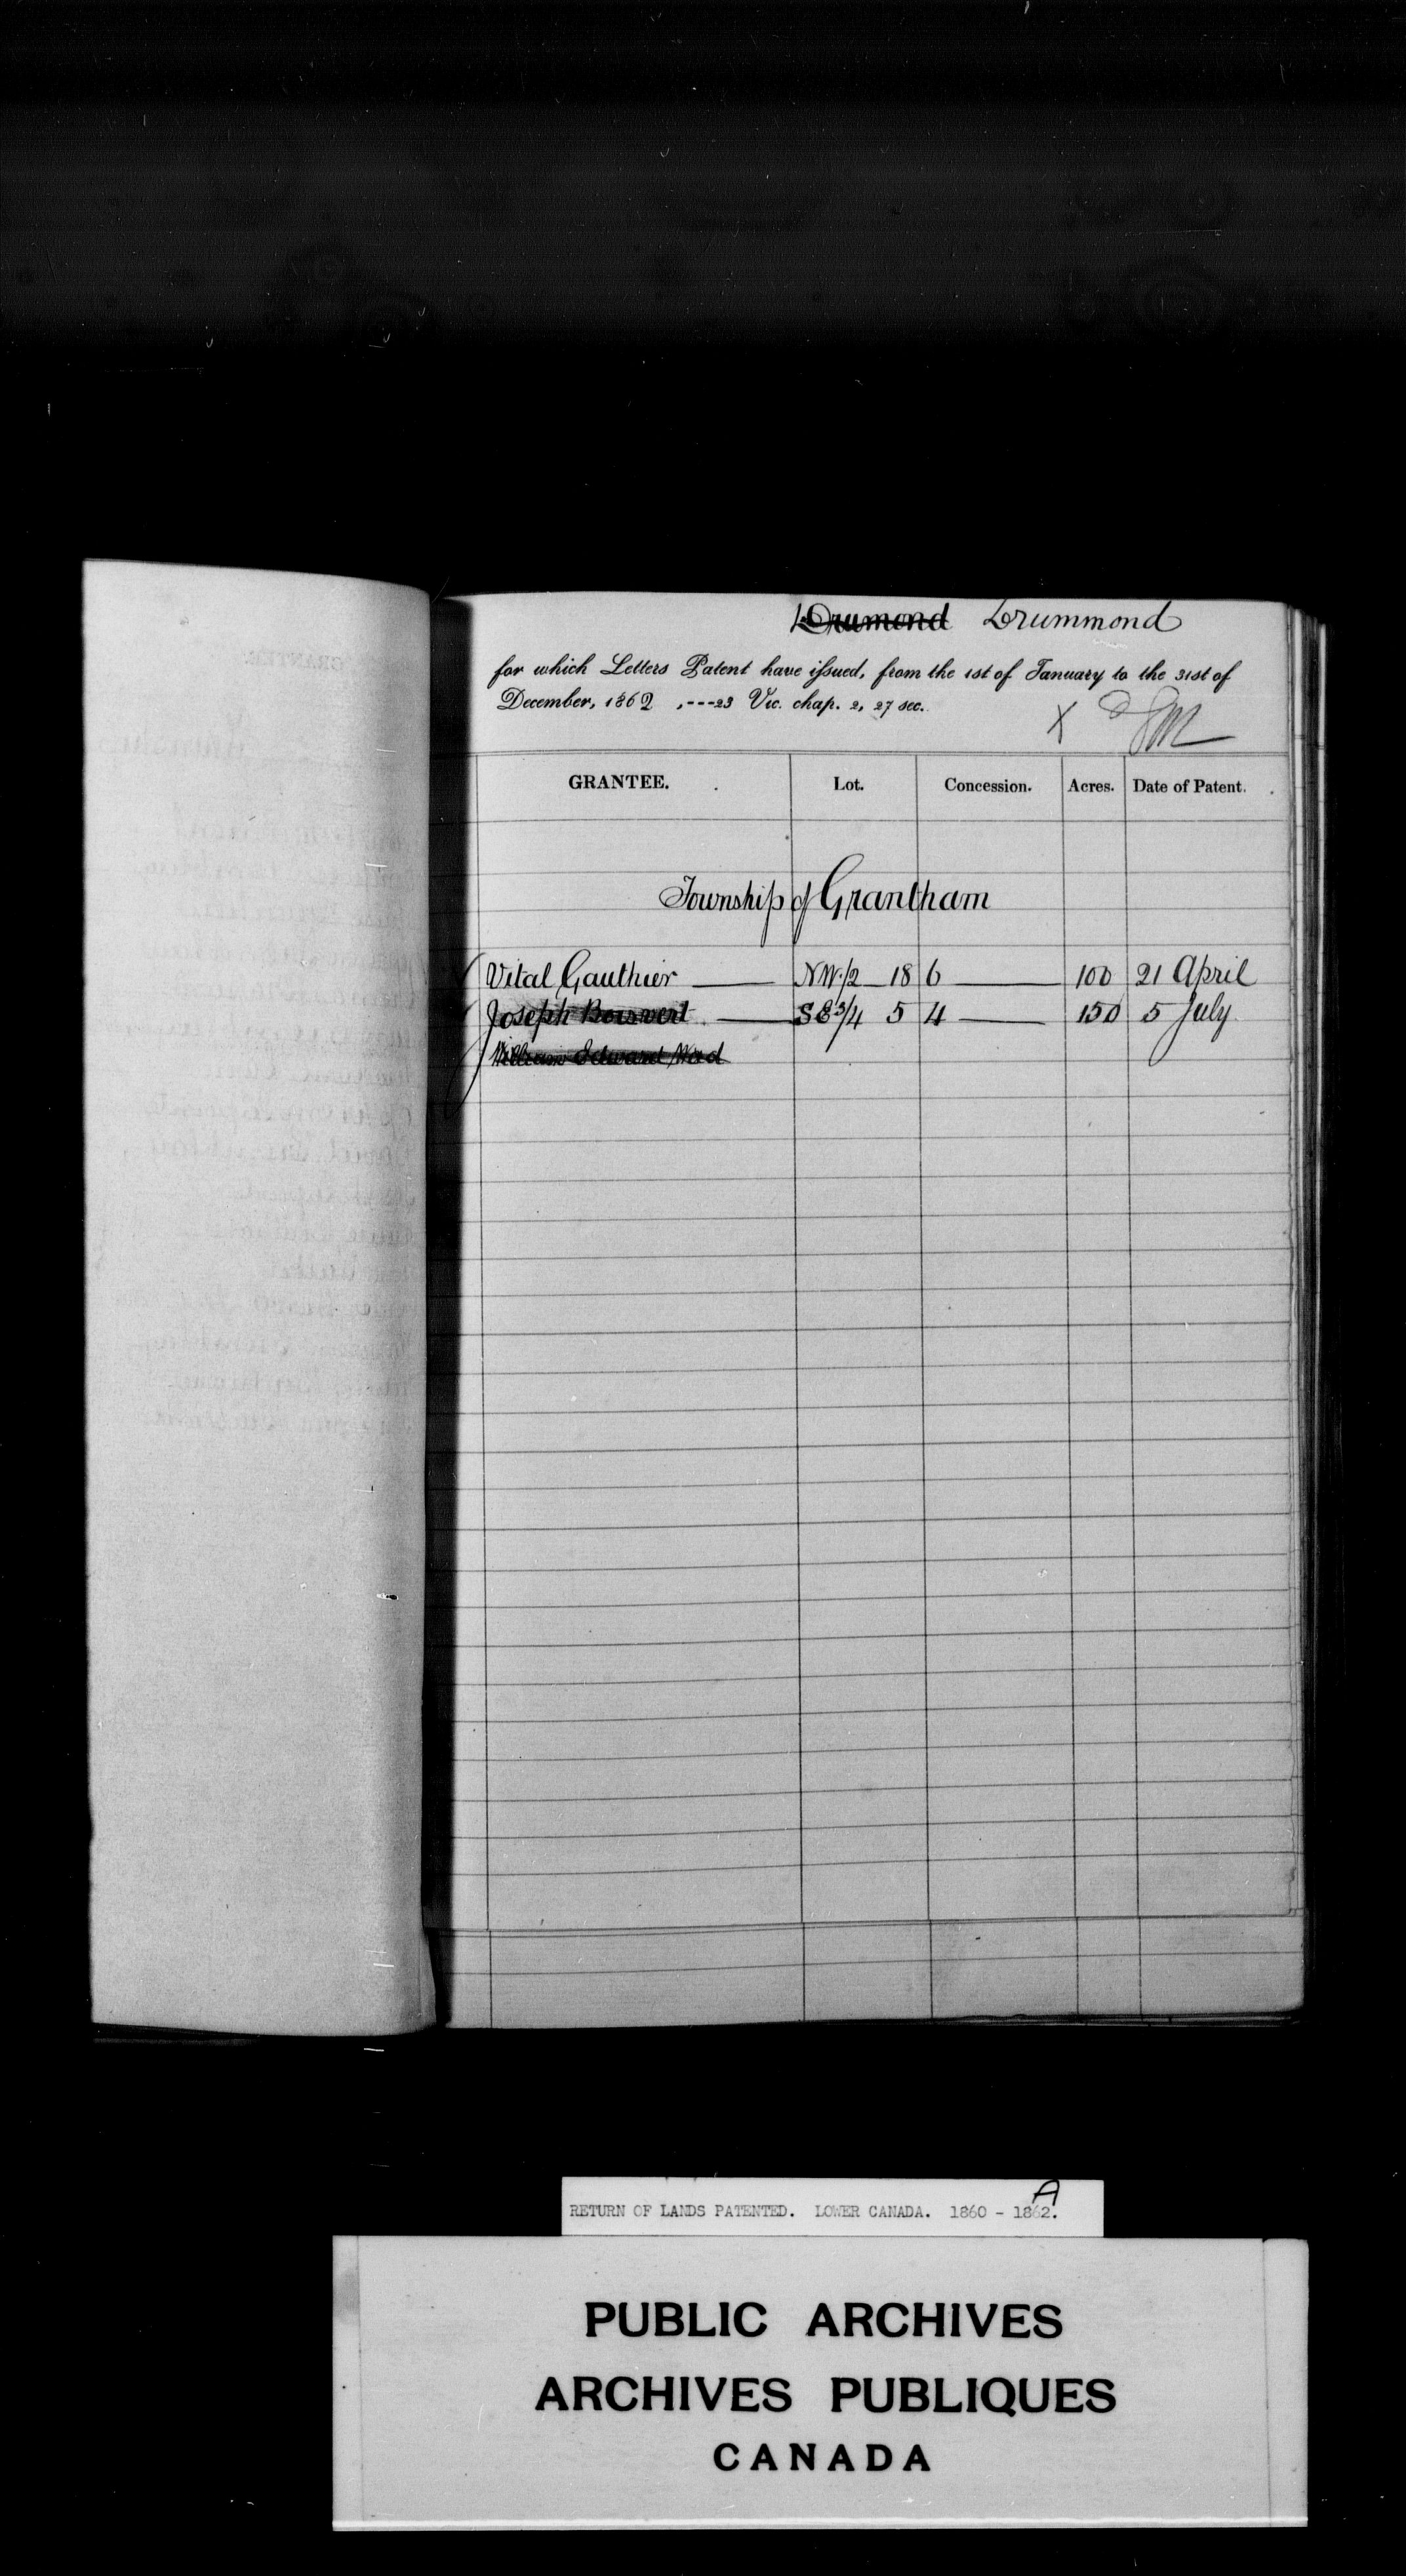 Drumond Drummond
for which Letters Patent have issued, from the 1st of January to the 31st of
December, 1862 ,---23 Vic. chap. 2, 27 sec.
X
GRANTEE. Lot. Concession. Acres. Date of Patent.
Township of Grantham
Vital Gauthier NW 1/2 18 6 100 21 April
Joseph Boisvert S E 3/4 5 4 150 5 July
William Edward Ward
RETURN OF LANDS PATENTED. LOWER CANADA. 1860 - 1862. A
PUBLIC ARCHIVES
ARCHIVES PUBLIQUES
CANADA